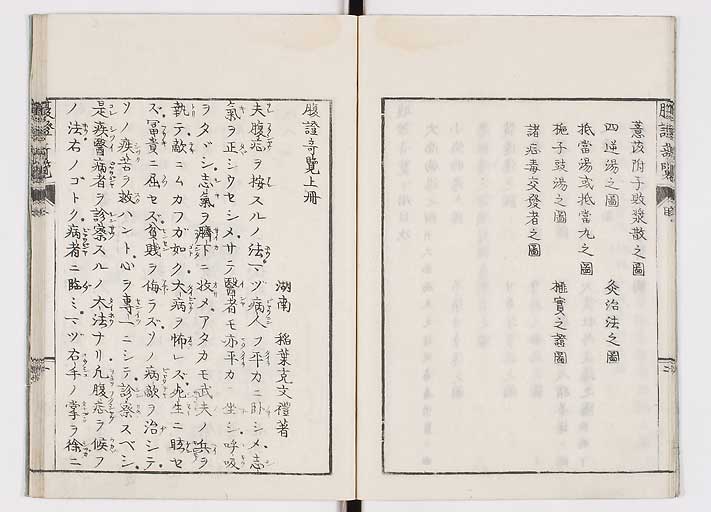 薏苡附子敗漿散之圖
四逆湯之圖 灸治法之圖
抵當湯或抵當丸之圖
梔子豉湯之圖 極實之證圖
諸疝毒交發者之圖
腹證奇覽上冊
湖南 稲葉克文禮著
夫腹症ヲ按スルノ法マヅ病人ヲ平カニ臥シメ志
氣ヲ正シウセシメサテ醫者モ亦平カニ坐シ呼吸
ヲタヾシ志氣ヲ臍下ニ收メアタカモ武夫ノ兵ヲ
執テ敵ニムカフガ如ク大病ヲ怖レズ死生ニ眩セ
ズ冨貴ニ屈セズ貧賎ヲ侮ラズソノ病敵ヲ治シテ
ソノ疾苦ヲ救ハント心ヲ專一ニシテ診察スベシ
是疾醫病者ヲ診察スルノ大法ナリ凡腹症ヲ候フ
ノ法右ノゴトク病者ニ臨ミマヅ右手ノ掌ヲ徐ニ